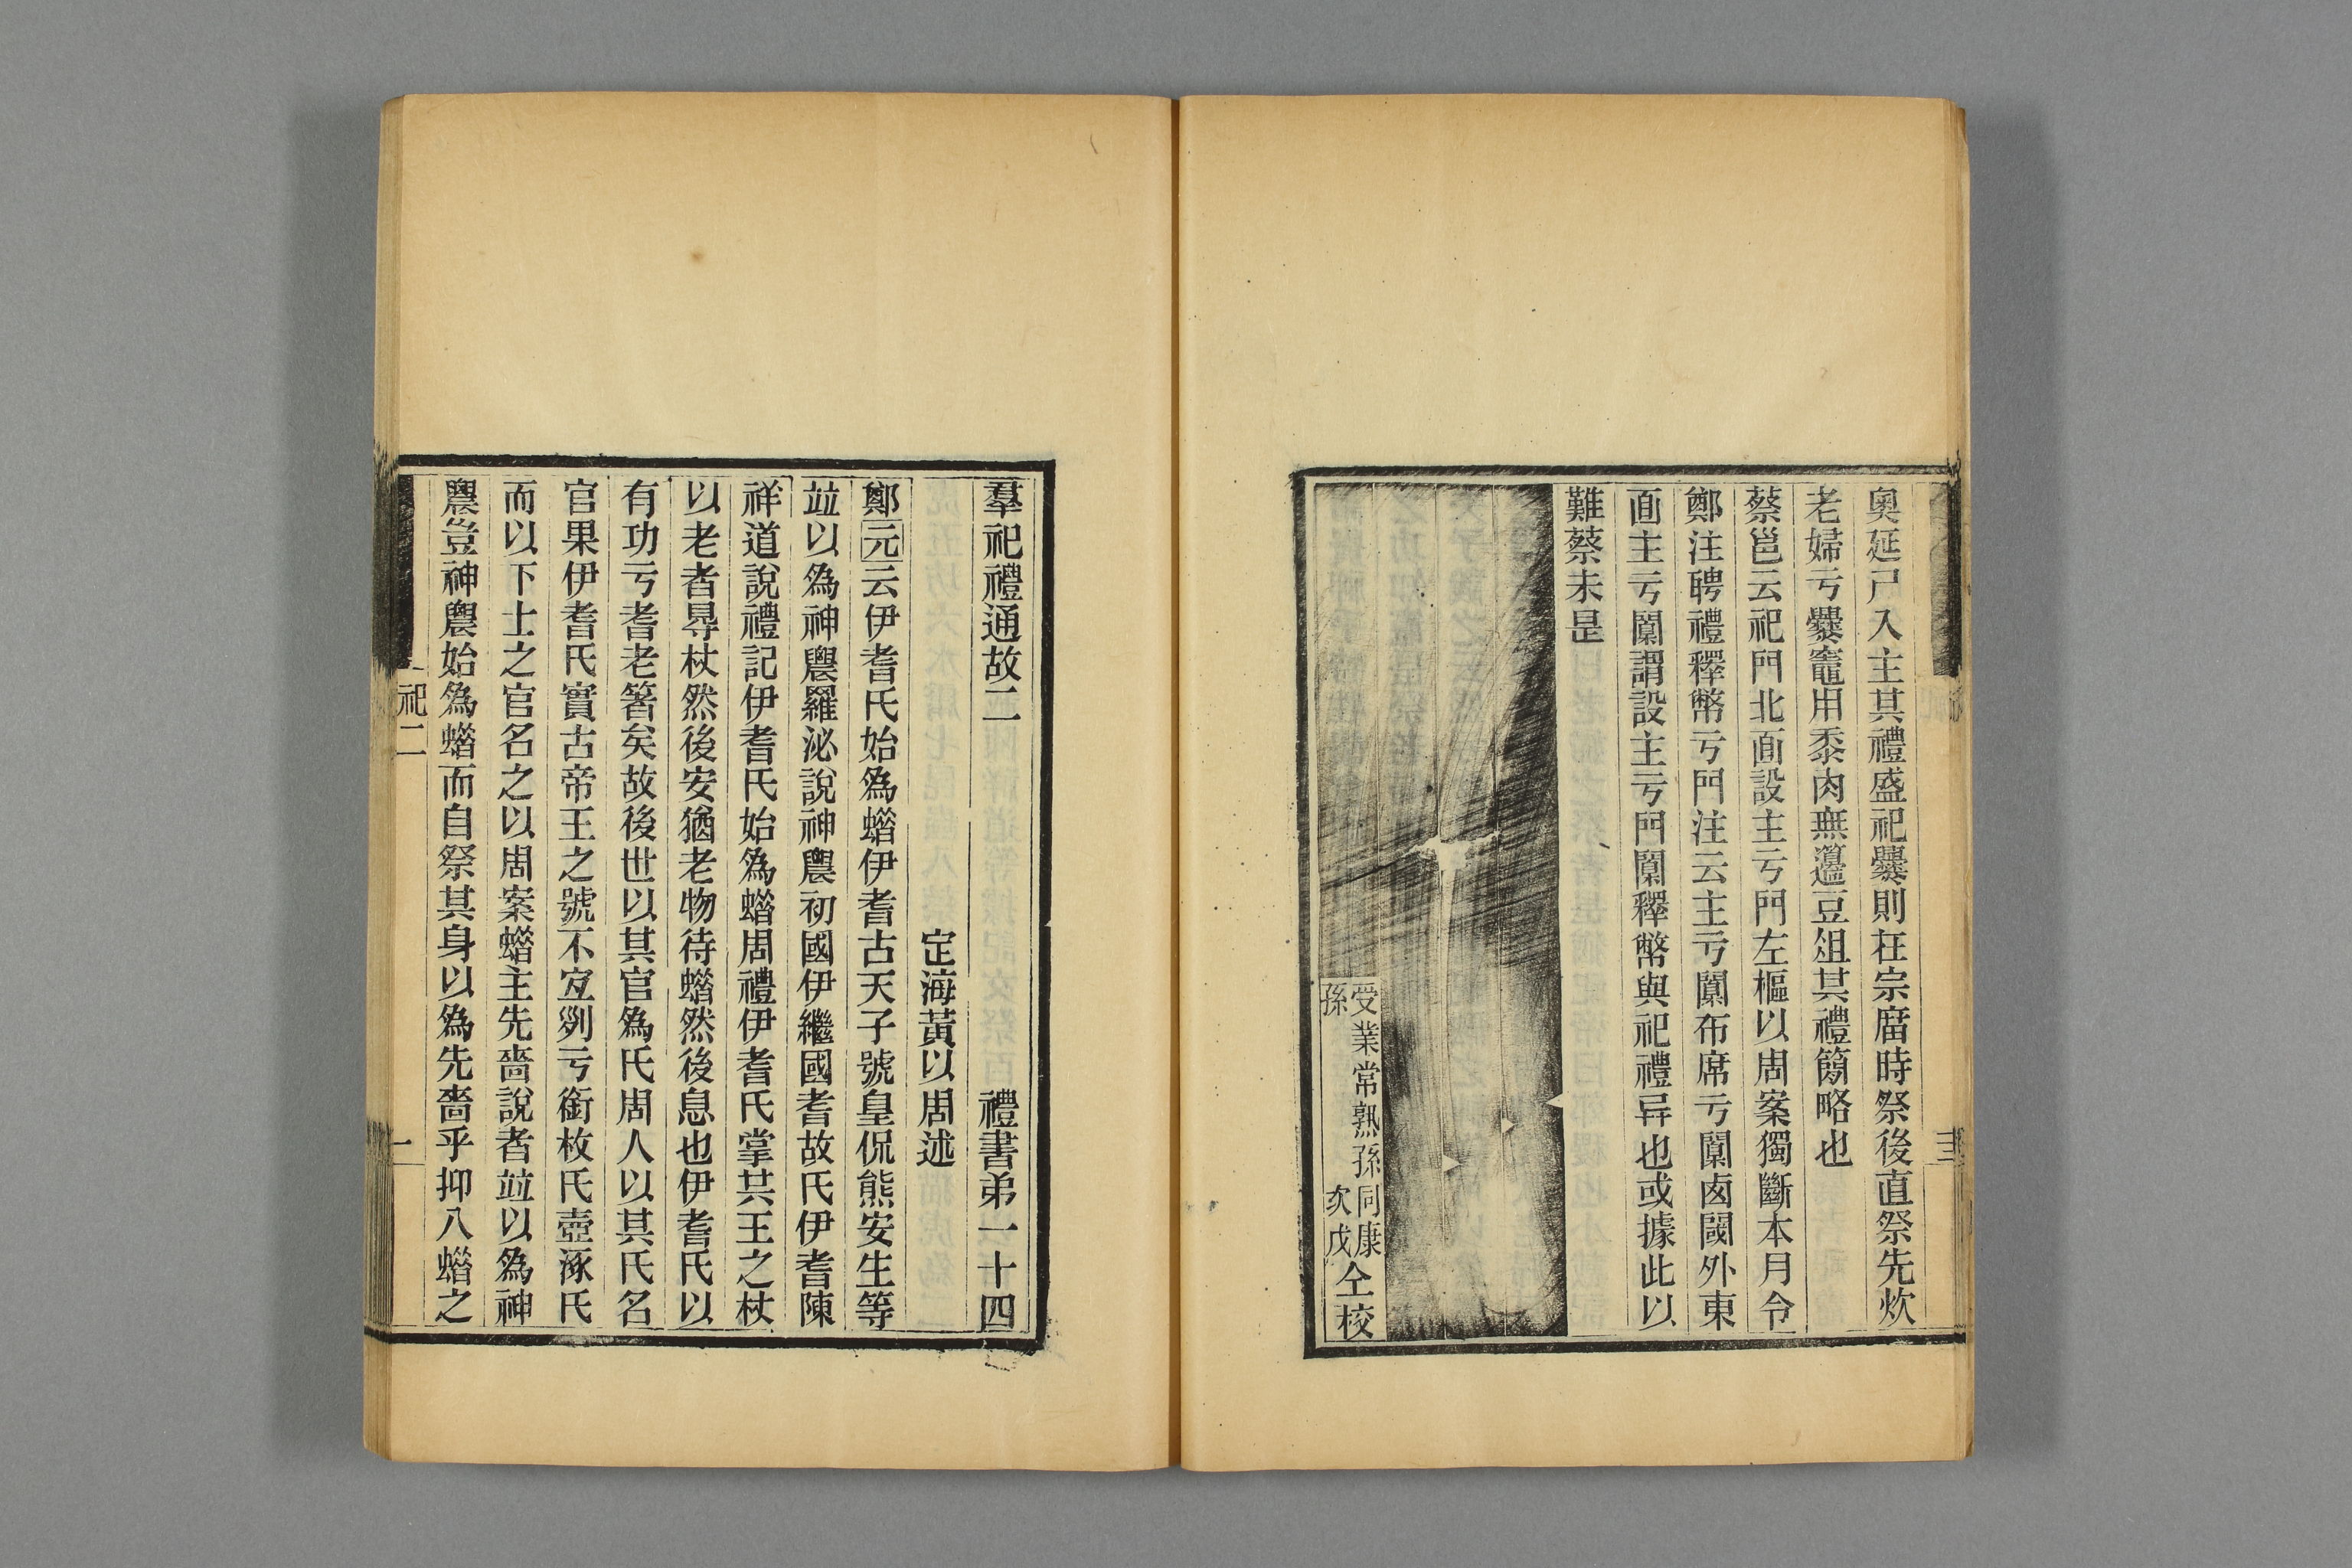 奧延尸入主其禮盛祀爨則在宗庿時祭後直祭先炊
老婦亏爨竈用黍肉無籩豆俎其禮簡略也
蔡邕云祀門北面設主亏門左樞以周案獨斷本月令
鄭注聘禮釋幣亏門注云主亏闑布席亏闑卥閾外東
面主亏闑謂設主亏門闑釋幣與祀禮异也或據此以
難蔡未昰
受業常熟孫同康
孫㳄戊仝校
三
羣祀禮通故二 禮書弟一十四
定海黃以周述
鄭元云伊耆氏始爲蜡伊耆古天子號皇侃熊安生等
竝以爲神農羅泌說神農初國伊繼國耆故氏伊耆陳
祥道說禮記伊耆氏始爲蜡周禮伊耆氏掌共王之杖
以老者㝵杖然後安猶老物待蜡然後息也伊耆氏以
有功亏耆老箸矣故後世以其官爲氏周人以其氏名
官果伊耆氏實古帝王之號不宐列亏銜枚氏壺涿氏
而以下士之官名之以周案蜡主先嗇說者竝以爲神
農豈神農始爲蜡而自祭其身以爲先嗇乎抑八蜡之
祀二
一